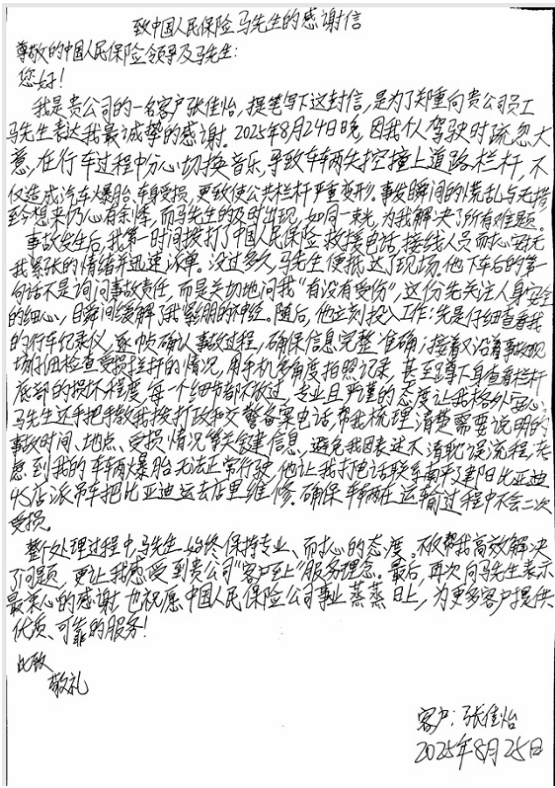 致中国人民保险马先生的感谢信
尊敬的中国人民保险领导及马先生：
您好！
我是贵公司的一名客户张佳怡，提笔写下这封信，是为了郑重向贵公司员工
马先生表达我最诚挚的感谢。2025年8月24日晚，因我个人驾驶时疏忽大
意，在行车过程中分心切换音乐，导致车辆失控撞上道路栏杆，不
仅造成汽车爆胎、车身受损，更致使公共栏杆严重变形。事发瞬间的慌乱与无措
至今想来仍心有余悸，而马先生的及时出现，如同一束光，为我解决了所有难题。
事故发生后，我第一时间拨打了中国人民保险救援电话，接线人员耐心安抚
我紧张的情绪并迅速派单。没过多久，马先生便抵达了现场，他下车后的第一
句话不是询问事故责任，而是关切地问我“有没有受伤”，这份先关注人身安全
的细心，瞬间缓解了我紧绷的神经。随后，他立刻投入工作：先是仔细查看我
的行车纪录仪，逐帧确认事故过程，确保信息完整准确；接着又沿着事故现
场仔细检查受损栏杆的情况，用手机多角度拍照记录，甚至蹲下身查看栏杆
底部的损坏程度，每一个细节都不放过，专业且严谨的态度让我格外安心。
马先生还手把手教我拨打政和交警备案电话，帮我梳理清楚需要说明的
事故时间、地点、受损情况等关键信息，避免我因表述不清耽误流程，考
虑到我的车辆爆胎无法正常行驶，他让我打电话联系南平建阳比亚迪
4S店派吊车把比亚迪运去店里维修，确保车辆在运输过程中不会二次
受损。
整个处理过程中，马先生始终保持专业、耐心的态度。不仅帮我高效解决
了问题，更让我感受到贵公司“客户至上”服务理念。最后，再次向马先生表示
最衷心的感谢，也祝愿中国人民保险公司事业蒸蒸日上，为更多客户提供
优质、可靠的服务！
此致
敬礼
客户：张佳怡
2025年8月25日